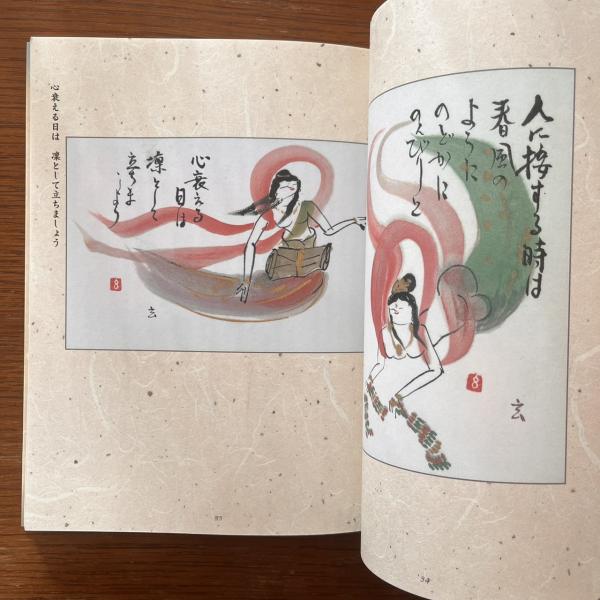 人に接する時は
春風の
ように
のどかに
のび〱と
玄
8
34
心衰える
日は
凛として
立ちま
しょう
玄
8
心衰える日は　凛として立ちましょう
35